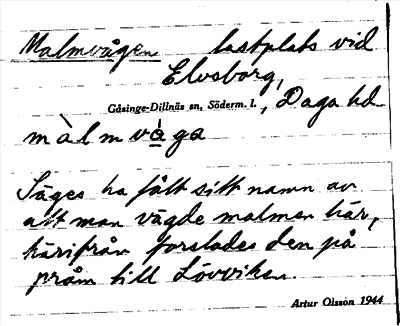 Malmvågen lastplats vid
Elvsborg,
Gåsinge-Dillnäs sn, Söderm. l., Daga hd
màlmvåga
Säges ha fått sitt namn av
att man vägde malmen här,
härifrån forslades den på
pråm till Lövviken.
Artur Olsson 1944